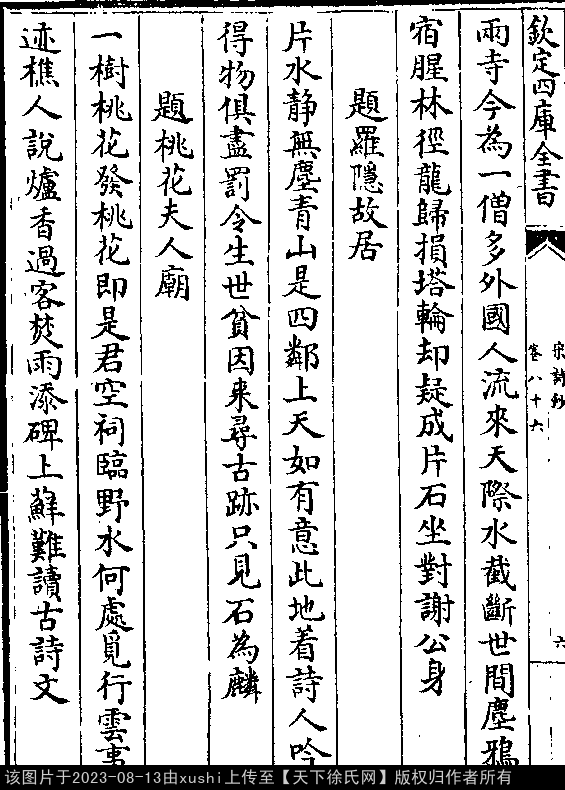 欽定四庫全書
宋詩鈔
卷八十六
六
雨寺今為一僧多外國人流來天際水截斷世間塵鴉
宿腥林徑龍歸損塔輪却疑成片石坐對謝公身
題羅隱故居
片水靜無塵青山是四鄰上天如有意此地着詩人吟
得物俱盡罰令生世貧因來尋古跡只見石為麟
題桃花夫人廟
一樹桃花發桃花即是君空祠臨野水何處覓行雲事
迹樵人說爐香過客焚雨添碑上蘚難讀古詩文
该图片于2023-08-13由xushi上传至【天下徐氏网】版权归作者所有